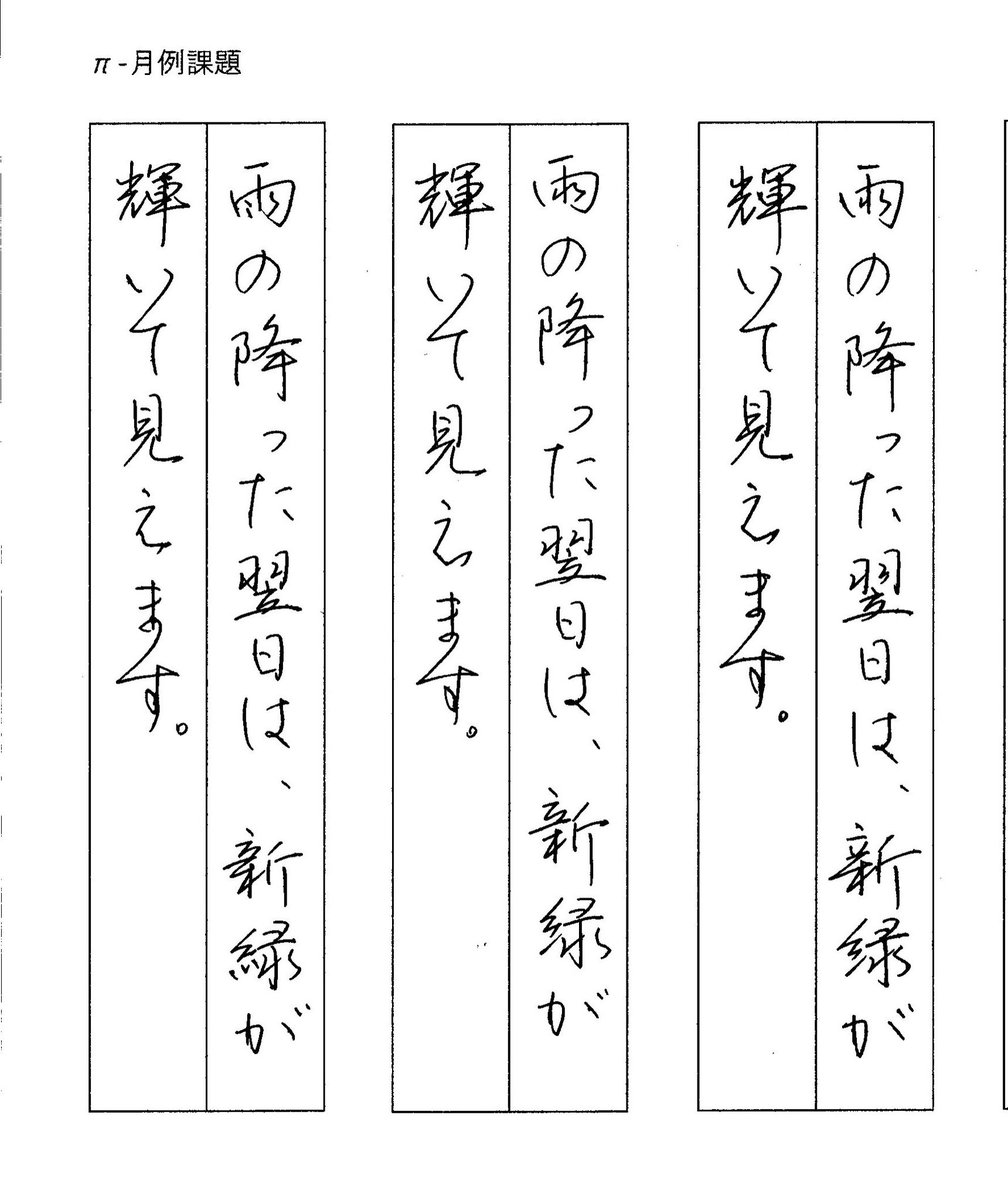 π-月例課題
雨の降った翌日は、新緑が
輝いて見えます。
雨の降った翌日は、新緑が
輝いて見えます。
雨の降った翌日は、新緑が
輝いて見えます。